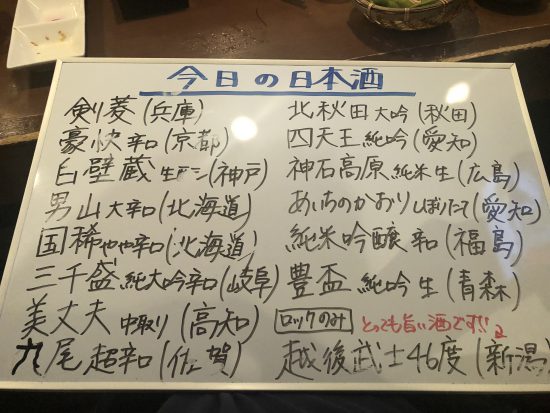 今日の日本酒
剣菱(兵庫)
豪快 辛口(京都)
白壁蔵 生モト(神戸)
男山 大辛口(北海道)
国稀 やや辛口(北海道)
三千盛 純大吟辛口(岐阜)
美丈夫 中取り(高知)
尾 超辛口(佐賀)
北秋田 大吟(秋田)
四天王 純吟(愛知)
神石高原 純米生(広島)
あいちのかおり しぼりたて(愛知)
純米吟醸 辛口(福島)
豊盃 純吟 生(青森)
ロックのみ とっても旨い酒です!!
越後武士 46度(新潟)